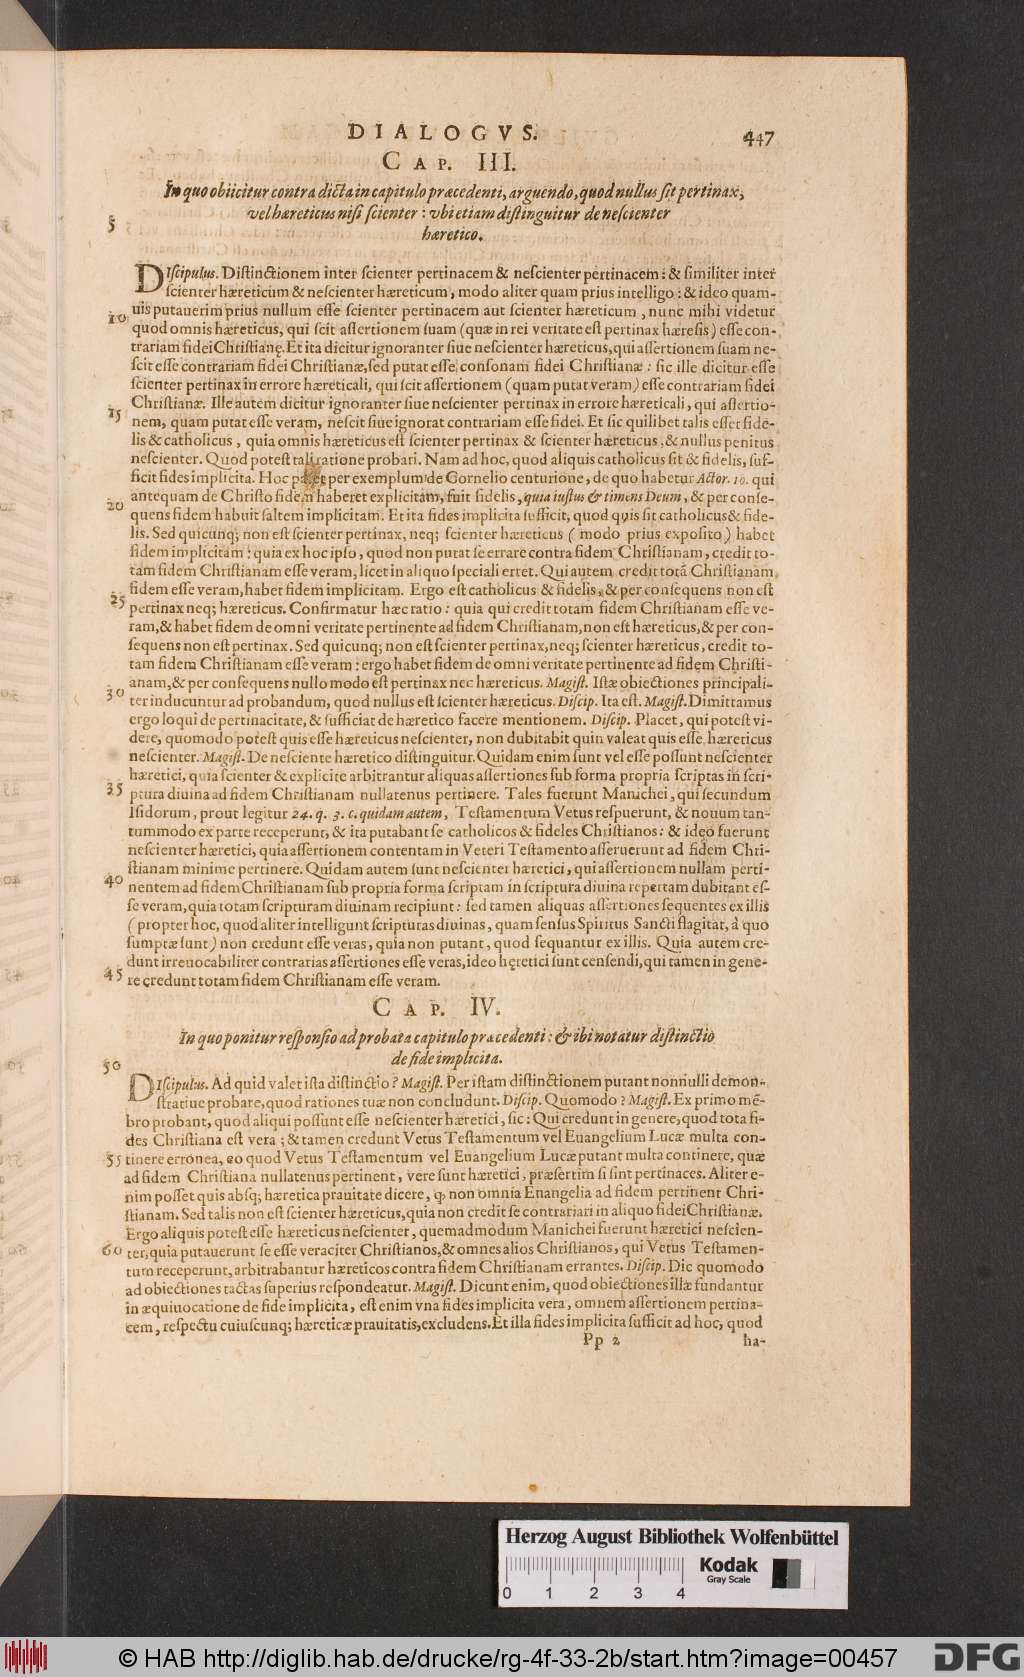 DIALOGVS. 447
CAP. III.
In quo obiicitur contra dicta in capitulo præcedenti, arguendo, quod nullus sit pertinax,
5 vel hæreticus nisi scienter: vbi etiam distinguitur de nescienter
hæretico.
DIscipulus. Distinctionem inter scienter pertinacem & nescienter pertinacem: & similiter inter
scienter hæreticum & nescienter hæreticum, modo aliter quam prius intelligo: & ideo quam-
10 uis putauerim prius nullum esse scienter pertinacem aut scienter hæreticum, nunc mihi videtur
quod omnis hæreticus, qui scit assertionem suam (quæ in rei veritate est pertinax hæresis) esse con-
trariam fidei Christianę. Et ita dicitur ignoranter siue nescienter hæreticus, qui assertionem suam ne-
scit esse contrariam fidei Christianæ, sed putat esse consonam fidei Christianæ: sic ille dicitur esse
scienter pertinax in errore hæreticali, qui scit assertionem (quam putat veram) esse contrariam fidei
Christianæ. Ille autem dicitur ignoranter siue nescienter pertinax in errore hæreticali, qui assertio-
15 nem, quam putat esse veram, nescit siue ignorat contrariam esse fidei. Et sic quilibet talis esset fidē-
lis & catholicus, quia omnis hæreticus est scienter pertinax & scienter hæreticus, & nullus penitus
nescienter. Quod potest tali ratione probari. Nam ad hoc, quod aliquis catholicus sit & fidelis, suf-
ficit fides implicita. Hoc patet per exemplum de Cornelio centurione, de quo habetur Actor. 10. qui
antequam de Christo fidem haberet explicitam, fuit fidelis, quia iustus & timens Deum, & per conse-
20 quens fidem habuit saltem implicitam. Et ita fides implicita sufficit, quod quis sit catholicus & fide-
lis. Sed quicunq; non est scienter pertinax, neq; scienter hæreticus (modo prius exposito) habet
fidem implicitam: quia ex hoc ipso, quod non putat se errare contra fidem Christianam, credit to-
tam fidem Christianam esse veram, licet in aliquo speciali erret. Qui autem credit totā Christianam
fidem esse veram, habet fidem implicitam. Ergo est catholicus & fidelis, & per consequens non est
25 pertinax neq; hæreticus. Confirmatur hæc ratio: quia qui credit totam fidem Christianam esse ve-
ram, & habet fidem de omni veritate pertinente ad fidem Christianam, non est hæreticus, & per con-
sequens non est pertinax. Sed quicunq; non est scienter pertinax, neq; scienter hæreticus, credit to-
tam fidem Christianam esse veram: ergo habet fidem de omni veritate pertinente ad fidem Christi-
anam, & per consequens nullo modo est pertinax nec hæreticus. Magist. Istæ obiectiones principali-
30 ter inducuntur ad probandum, quod nullus est scienter hæreticus. Discip. Ita est. Magist. Dimittamus
ergo loqui de pertinacitate, & sufficiat de hæretico facere mentionem. Discip. Placet, qui potest vi-
dere, quomodo potest quis esse hæreticus nescienter, non dubitabit quin valeat quis esse hæreticus
nescienter. Magist. De nesciente hæretico distinguitur. Quidam enim sunt vel esse possunt nescienter
hæretici, quia scienter & explicite arbitrantur aliquas assertiones sub forma propria scriptas in scri-
35 ptura diuina ad fidem Christianam nullatenus pertinere. Tales fuerunt Manichei, qui secundum
Isidorum, prout legitur 24. q. 3. c. quidam autem, Testamentum Vetus respuerunt, & nouum tan-
tummodo ex parte receperunt, & ita putabant se catholicos & fideles Christianos: & ideo fuerunt
nescienter hæretici, quia assertionem contentam in Veteri Testamento asseruerunt ad fidem Chri-
stianam minime pertinere. Quidam autem sunt nescienter hæretici, qui assertionem nullam perti-
40 nentem ad fidem Christianam sub propria forma scriptam in scriptura diuina repertam dubitant es-
se veram, quia totam scripturam diuinam recipiunt: sed tamen aliquas assertiones sequentes ex illis
(propter hoc, quod aliter intelligunt scripturas diuinas, quam sensus Spiritus Sancti flagitat, à quo
sumptæ sunt) non credunt esse veras, quia non putant, quod sequantur ex illis. Quia autem cre-
dunt irreuocabiliter contrarias assertiones esse veras, ideo hęretici sunt censendi, qui tamen in gene-
45 re credunt totam fidem Christianam esse veram.
CAP. IV.
In quo ponitur responsio ad probata capitulo præcedenti: & ibi notatur distinctio
50 de fide implicita.
DIscipulus. Ad quid valet ista distinctio? Magist. Per istam distinctionem putant nonnulli demon-
stratiue probare, quod rationes tuæ non concludunt. Discip. Quomodo? Magist. Ex primo mē-
bro probant, quod aliqui possunt esse nescienter hæretici, sic: Qui credunt in genere, quod tota fi-
des Christiana est vera; & tamen credunt Vetus Testamentum vel Euangelium Lucæ multa con-
55 tinere erronea, eo quod Vetus Testamentum vel Euangelium Lucæ putant multa continere, quæ
ad fidem Christiana nullatenus pertinent, vere sunt hæretici, præsertim si sint pertinaces. Aliter e-
nim posset quis absq; hæretica prauitate dicere, ꝙ non omnia Euangelia ad fidem pertinent Chri-
stianam. Sed talis non est scienter hæreticus, quia non credit se contrariari in aliquo fidei Christianæ.
Ergo aliquis potest esse hæreticus nescienter, quemadmodum Manichei fuerunt hæretici nescien-
60 ter, quia putauerunt se esse veraciter Christianos, & omnes alios Christianos, qui Vetus Testamen-
tum receperunt, arbitrabantur hæreticos contra fidem Christianam errantes. Discip. Dic quomodo
ad obiectiones tactas superius respondeatur. Magist. Dicunt enim, quod obiectiones illæ fundantur
in æquiuocatione de fide implicita, est enim vna fides implicita vera, omnem assertionem pertina-
cem, respectu cuiuscunq; hæreticæ prauitatis, excludens. Et illa fides implicita sufficit ad hoc, quod
Pp 2 ha-
Herzog August Bibliothek Wolfenbüttel
0 1 2 3 4
Kodak
Gray Scale
© HAB http://diglib.hab.de/drucke/rg-4f-33-2b/start.htm?image=00457
DFG